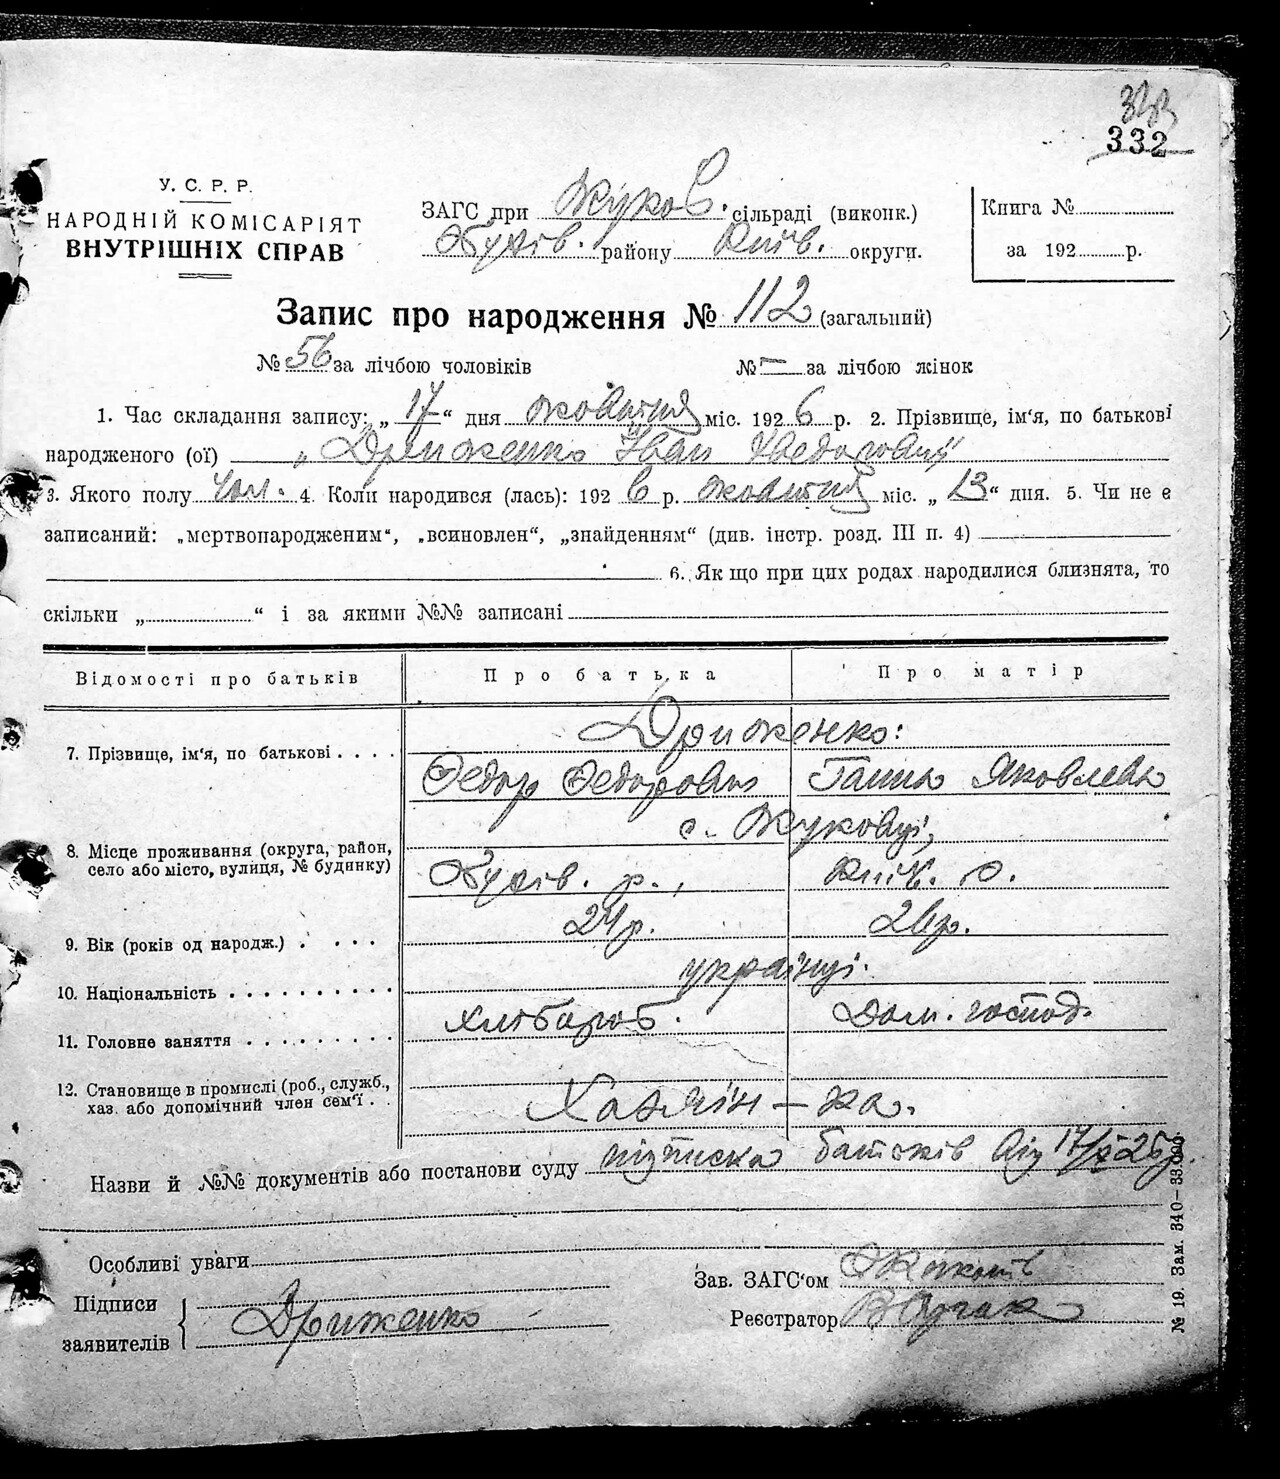 332
У. С. Р. Р.
НАРОДНІЙ КОМІСАРІЯТ
ВНУТРІШНІХ СПРАВ
ЗАГС при Жуков. сільраді (виконк.)
Обухів. району Київ. округи.
Книга №
за 192 р.
Запис про народження № 112 (загальний)
№ 56 за лічбою чоловіків № — за лічбою жінок
1. Час складання запису: „ 17 “ дня жовтня міс. 192 6 р. 2. Прізвище, ім‘я, по батькові
народженого (ої) „ Дриженко Іван Хведорович
3. Якого полу чол. 4. Коли народився (лась): 192 6 р. жовтня міс. „ 13 “ дня. 5. Чи не є
записаний: „мертвонародженим“, „всиновлен“, „знайденням“ (див. інстр. розд. III п. 4)
6. Як що при цих родах народилися близнята, то
скільки „ “ і за якими №№ записані
Відомості про батьків Про батька Про матір
7. Прізвище, ім‘я, по батькові Дриженко:
Федор Федорович Ганна Яковлевна
с. Жуковці,
8. Місце проживання (округа, район,
село або місто, вулиця, № будинку) Обухів. р., Київ. о.
9. Вік (років од народж.) 24 р. 26 р.
10. Національність українці.
11. Головне заняття Хлібороб. Дом. господ.
12. Становище в промислі (роб., служб.,
хаз. або допомічний член сем‘ї Хазяїн – ка.
Назви й №№ документів або постанови суду підписка батьків від 17/X 26 р.
Особливі уваги
Підписи
заявителів Дриженко
Зав. ЗАГС‘ом
Реєстратор
№ 19. Зам. 340–33.000.